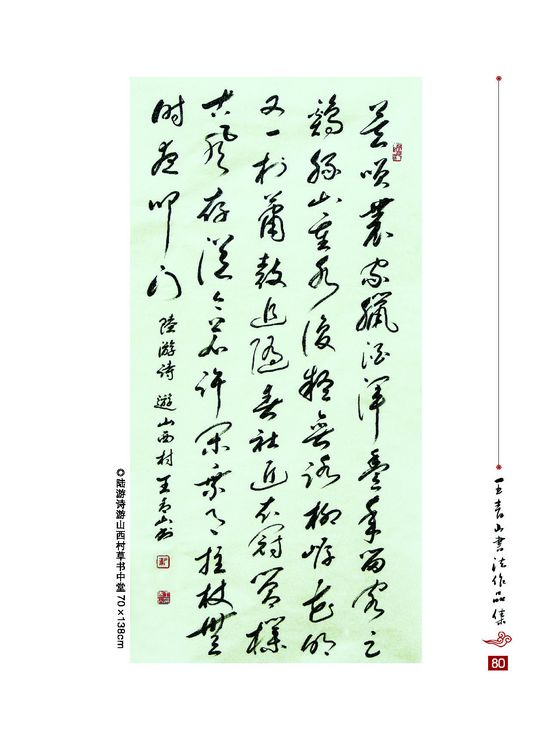 莫咲農家臘酒渾豐年留客足
鷄豚山重水復疑無路柳暗花明
又一村簫鼓追隨春社近衣冠簡樸
古風存從今若許閑乘月拄杖無
時夜叩門 陸游詩 遊山西村 王青山書
◎陆游诗游山西村草书中堂 70×138cm
王青山書法作品集
80